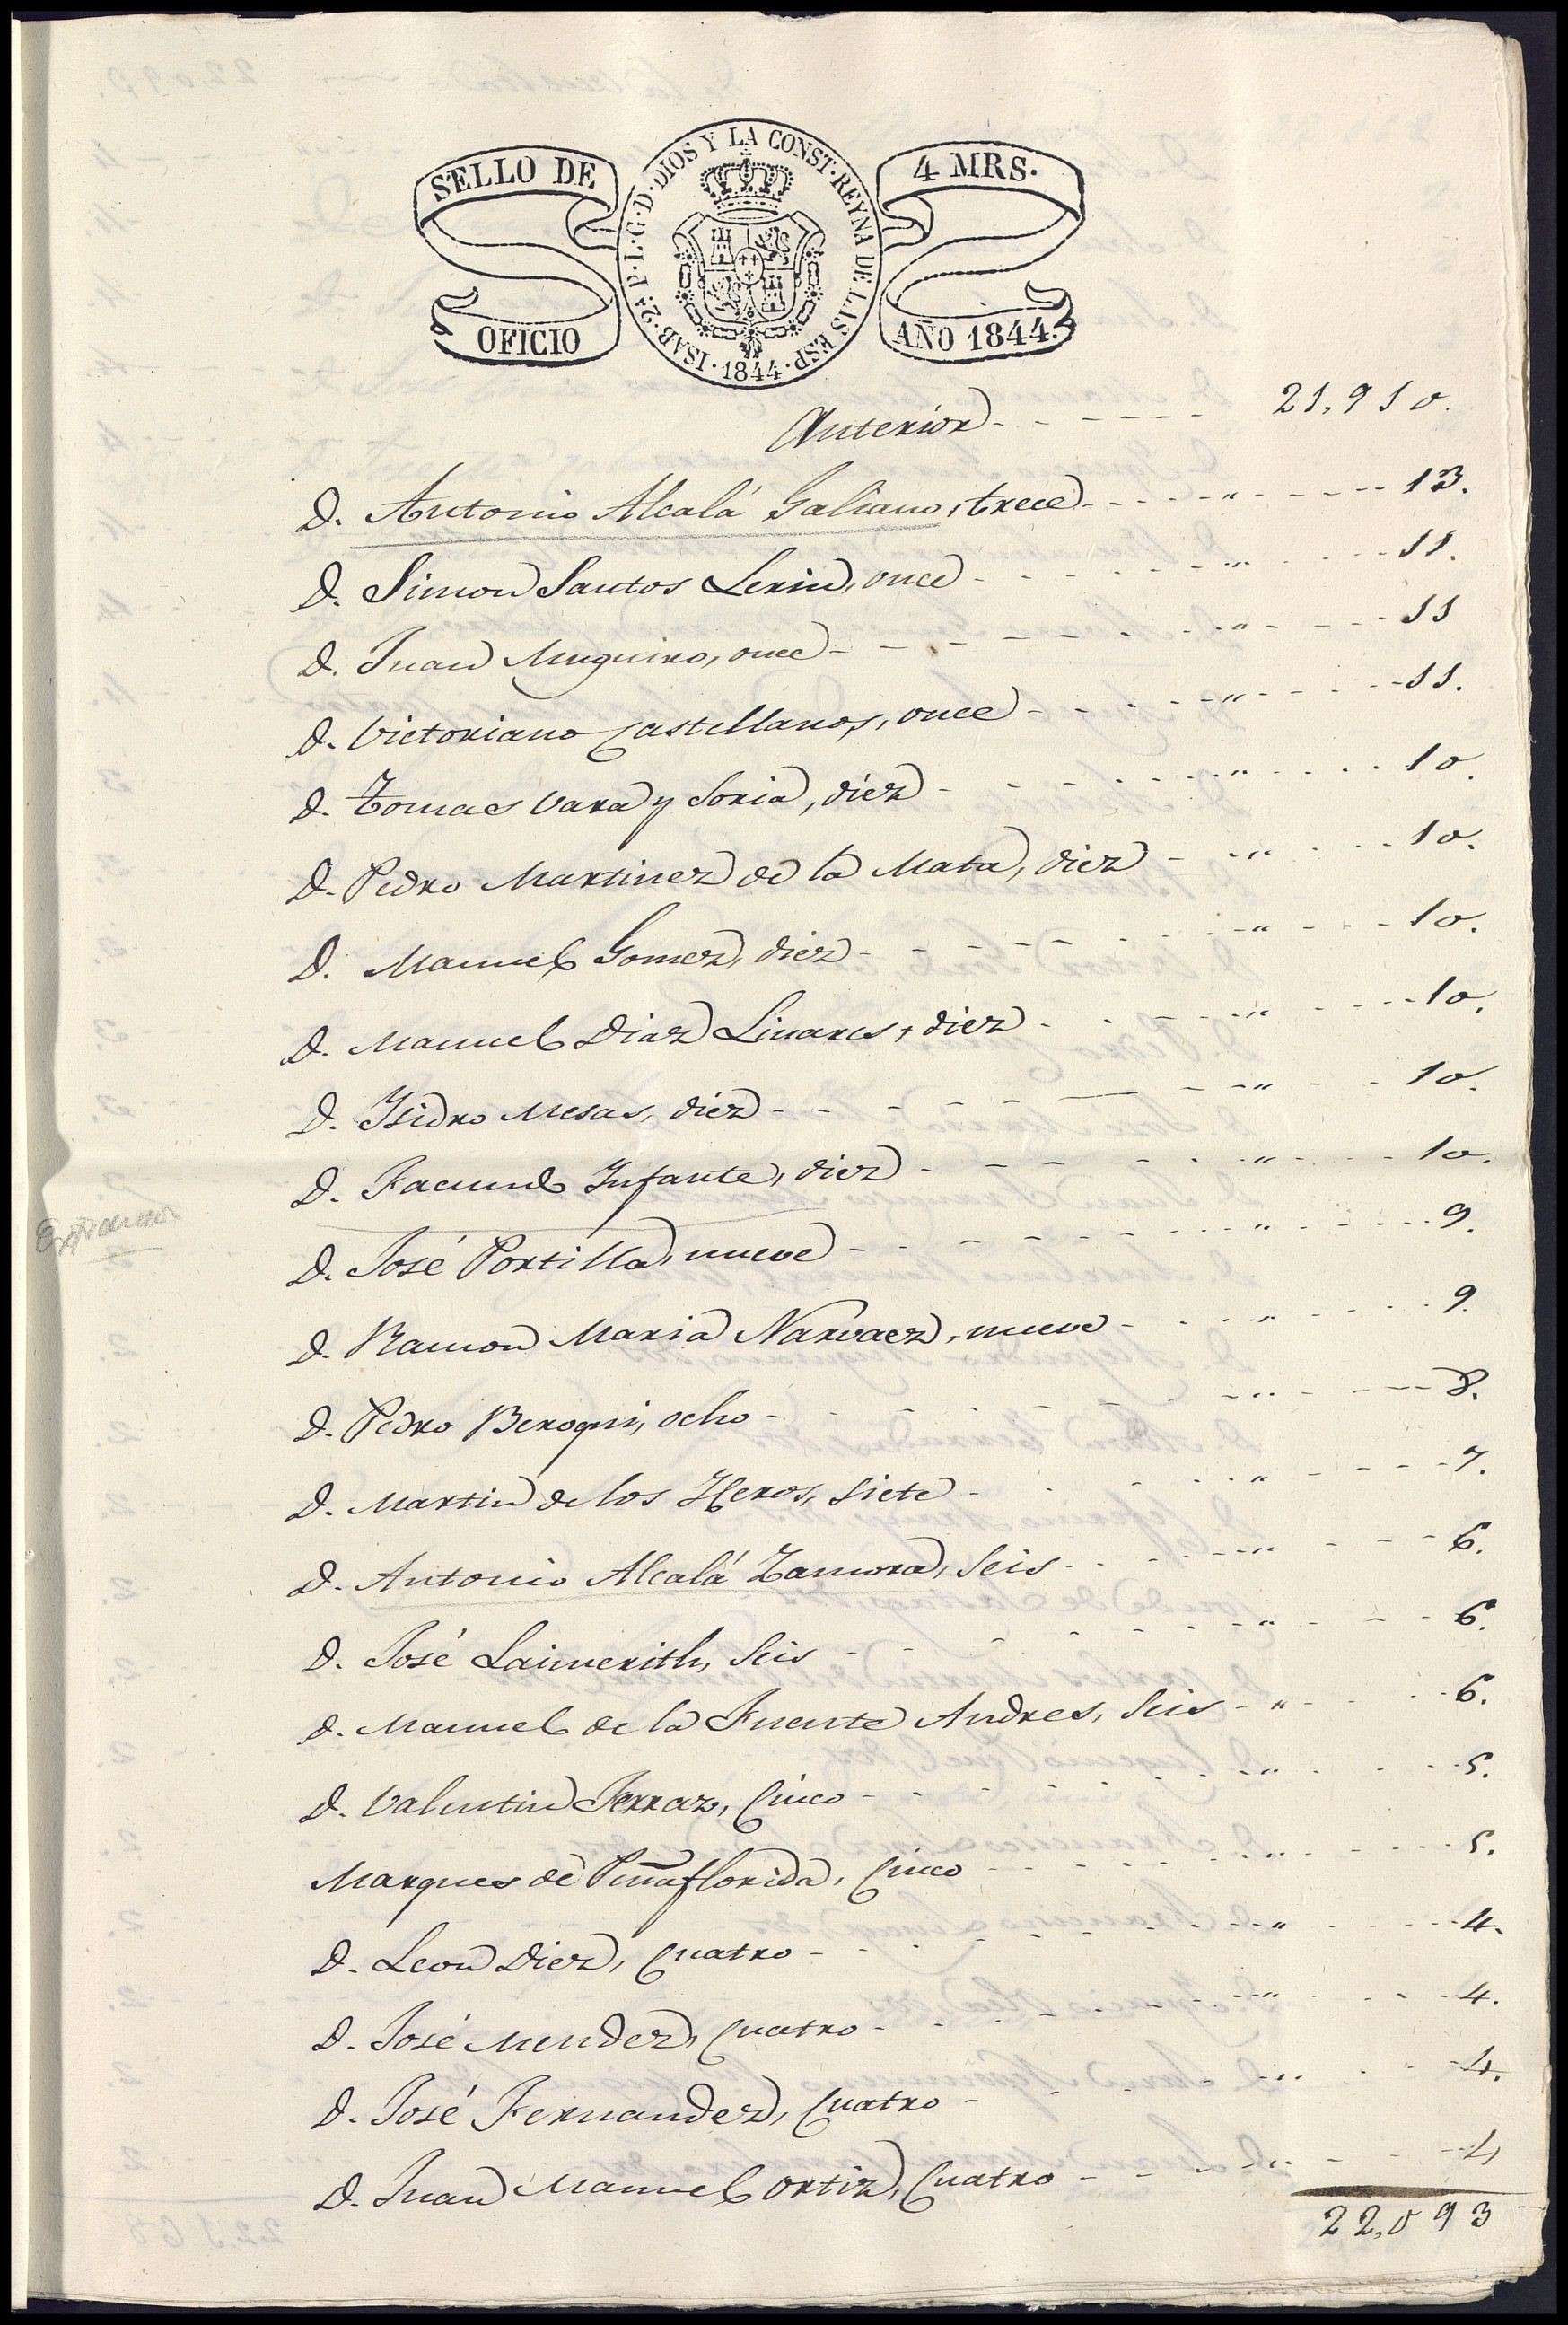 SELLO DE
OFICIO
ISAB. 2ª P. L. G. D. DIOS Y LA CONST. REYNA DE LAS ESP. 1844.
4 MRS.
AÑO 1844.
Anterior 21,910.
D. Antonio Alcalá Galiano, trece 13.
D. Simon Santos Lerin, once 11.
D. Juan Muguiro, once 11
D. Victoriano Castellanos, once 11.
D. Tomas Vara y Soria, diez 10.
D. Pedro Martinez de la Mata, diez 10.
D. Manuel Gomez, diez 10.
D. Manuel Diaz Linares, diez 10.
D. Isidro Mesas, diez 10.
D. Facundo Infante, diez 10.
D. José Portilla, nueve 9.
D. Ramon Maria Narvaez, nueve 9.
D. Pedro Beroqui, ocho 8.
D. Martin de los Heros, siete 7.
D. Antonio Alcalá Zamora, seis 6.
D. José Laimerith, seis 6.
D. Manuel de la Fuente Andres, seis 6.
D. Valentin Ferraz, Cinco 5.
Marques de Peñaflorida, Cinco 5.
D. Leon Diez, Cuatro 4.
D. José Mendez, Cuatro 4.
D. José Fernandez, Cuatro 4.
D. Juan Manuel Ortiz, Cuatro 4
22,093